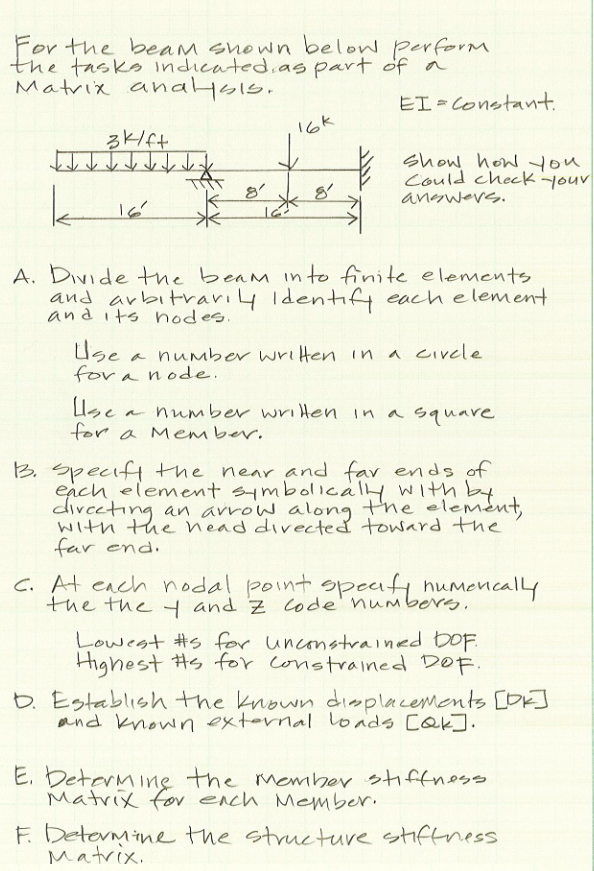 For the beam shown below perform
the tasks indicated as part of a
Matrix analysis.
EI = Constant.
3k/ft
16k
show how you
Could check your
answers.
8' 8'
16' 16'
A. Divide the beam into finite elements
and arbitrarily Identify each element
and its nodes.
Use a number written in a circle
for a node.
Use a number written in a square
for a Member.
B. Specify the near and far ends of
each element symbolically with by
directing an arrow along the element,
with the head directed toward the
far end.
C. At each nodal point specify numerically
the the y and z code numbers.
Lowest #s for unconstrained DOF.
Highest #s for constrained DOF.
D. Establish the known displacements [Dk]
and known external loads [Qk].
E. Determine the member stiffness
Matrix for each Member.
F. Determine the structure stiffness
Matrix.